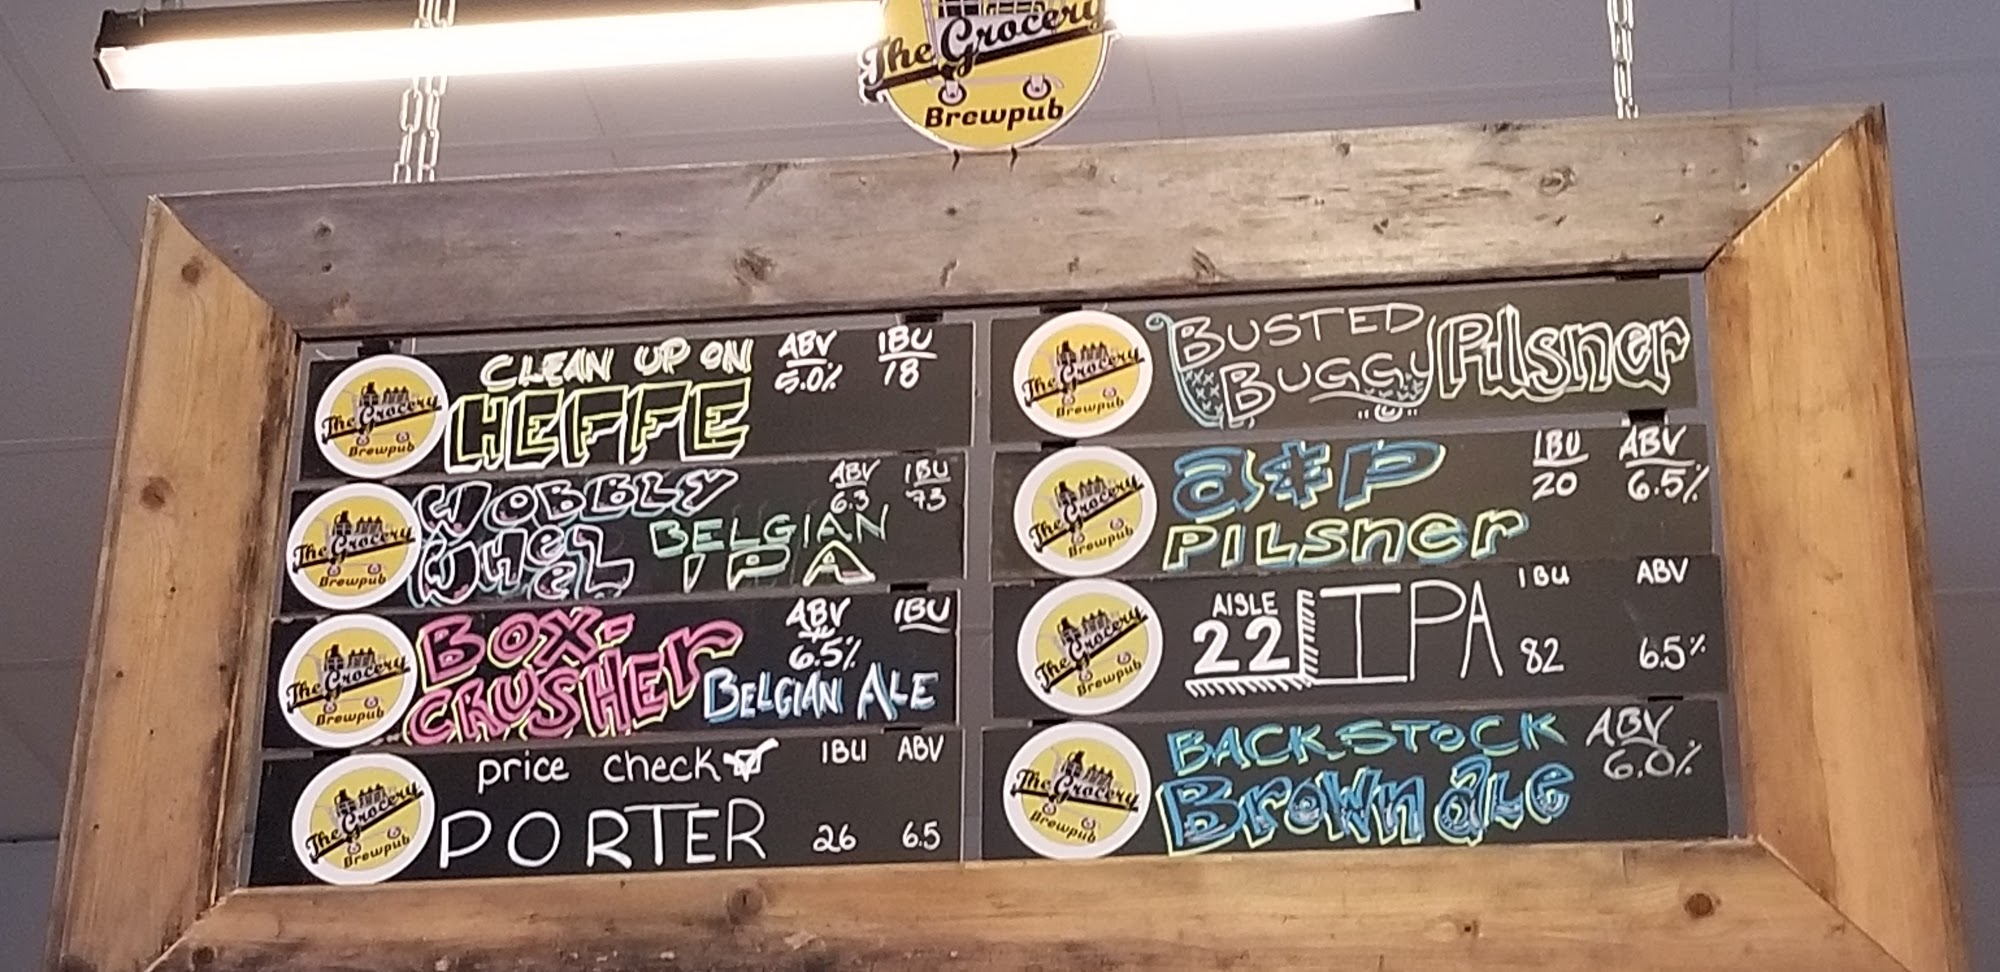 The Grocery
Brewpub
The Grocery
Brewpub
CLEAN UP ON
HEFFE
ABV
5.0%
IBU
18
The Grocery
Brewpub
WOBBLY
WHEEL
BELGIAN
IPA
ABV
6.3
IBU
73
The Grocery
Brewpub
BOX-
CRUSHER
BELGIAN ALE
ABV
6.5%
IBU
The Grocery
Brewpub
price check
PORTER
IBU ABV
26 6.5
The Grocery
Brewpub
BUSTED
BUGGY
Pilsner
The Grocery
Brewpub
a&P
PILsner
IBU
20
ABV
6.5%
The Grocery
Brewpub
AISLE
22
IPA
IBU ABV
82 6.5%
The Grocery
Brewpub
BACK STOCK
Brown ale
ABV
6.0%